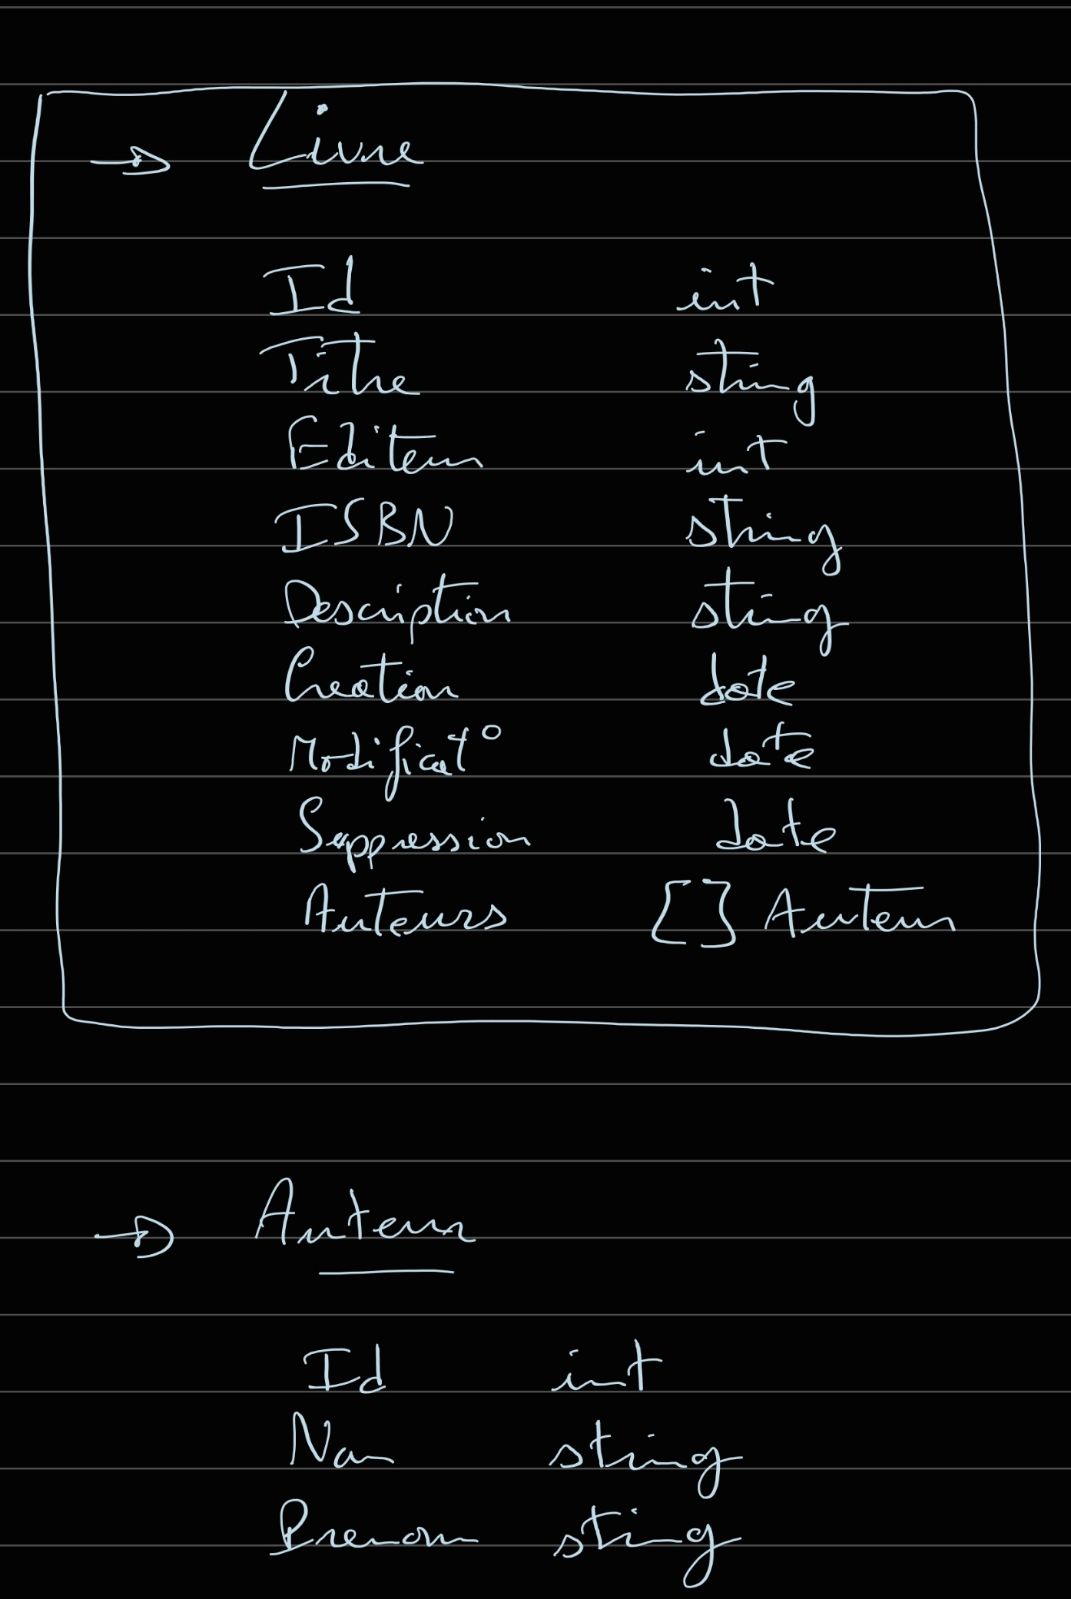 → Livre
Id int
Titre string
Editeur int
ISBN string
Description string
Creation date
Modificat° date
Suppression date
Auteurs [] Auteur
→ Auteur
Id int
Nom string
Prenom string